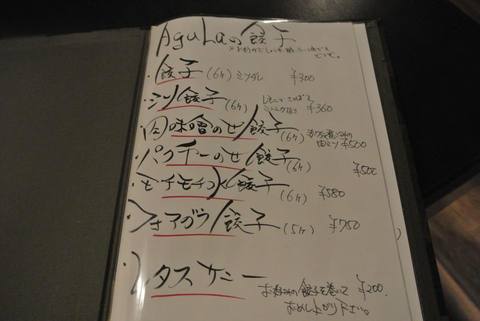 AguLaの餃子
・餃子 (6ヶ) ¥300
・シソ餃子 (6ヶ) ¥360
・肉味噌のせ餃子 (6ヶ) ¥500
・パクチーのせ餃子 (6ヶ) ¥500
・モチモチ水餃子 (6ヶ) ¥580
・フォアグラ餃子 (5ヶ) ¥750
・レタス
お好みの餃子を巻いて ¥200
お召し上がり下さい。